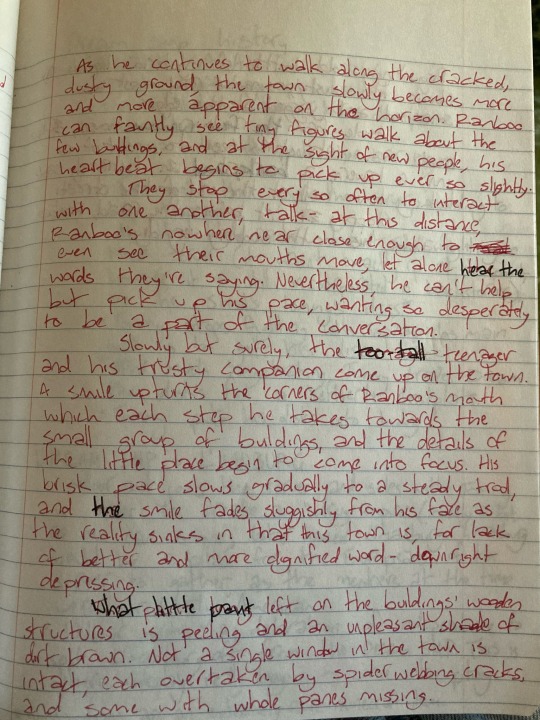 As he continues to walk along the cracked,
dusty ground, the town slowly becomes more
and more apparent on the horizon. Ranboo
can faintly see tiny figures walk about the
few buildings, and at the sight of new people, his
heartbeat begins to pick up ever so slightly.
They stop every so often to interact
with one another, talk- at this distance,
Ranboo's nowhere near close enough to
even see their mouths move, let alone hear the
words they're saying. Nevertheless, he can't help
but pick up his pace, wanting so desperately
to be a part of the conversation.
Slowly but surely, the too-tall teenager
and his trusty companion come up on the town.
A smile upturns the corners of Ranboo's mouth
which each step he takes towards the
small group of buildings, and the details of
the little place begin to come into focus. His
brisk pace slows gradually to a steady trod,
and the smile fades sluggishly from his face as
the reality sinks in that this town is, for lack
of better and more dignified word- downright
depressing.
What little paint left on the buildings' wooden
structures is peeling and an unpleasant shade of
dirt brown. Not a single window in the town is
intact, each overtaken by spiderwebbing cracks,
and some with whole panes missing.